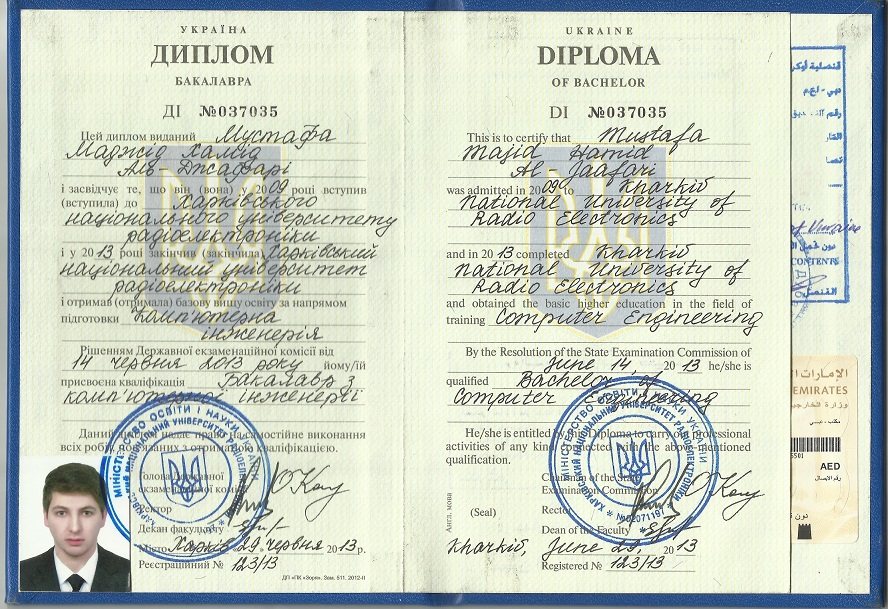 УКРАЇНА
ДИПЛОМ
БАКАЛАВРА
ДІ №037035
Цей диплом виданий Мустафа
Маджід Хамід
Аль Джаафарі
і засвідчує те, що він (вона) у 2009 році вступив
(вступила) до Харківського
національного університету
радіоелектроніки
і у 2013 році закінчив (закінчила) Харківський
національний університет
радіоелектроніки
і отримав (отримала) базову вищу освіту за напрямом
підготовки Комп'ютерна
інженерія
Рішенням Державної екзаменаційної комісії від
14 червня 2013 року йому/їй
присвоєна кваліфікація бакалавр з
комп'ютерної інженерії
Даний диплом надає право на самостійне виконання
всіх робіт, пов'язаних з отриманою кваліфікацією.
Голова Державної
екзаменаційної комісії
Ректор
Декан факультету
Місто Харків «29» червня 2013 р.
Реєстраційний № 123/13
ДП «ПК «Зоря». Зам. 511. 2012-ІІ
UKRAINE
DIPLOMA
OF BACHELOR
DI №037035
This is to certify that Mustafa
Majid Hamid
Al Jaafari
was admitted in 2009 to Kharkiv
National University of
Radio Electronics
and in 2013 completed Kharkiv
National University of
Radio Electronics
and obtained the basic higher education in the field of
training Computer Engineering
By the Resolution of the State Examination Commission of
June 14, 2013 he/she is
qualified Bachelor of
Computer Engineering
He/she is entitled by this Diploma to carry out professional
activities of any kind connected with the above-mentioned
qualification.
Chairman of the State
Examination Commission
(Seal)
Rector
Dean of the Faculty
Kharkiv, June 29, 2013
Registered № 123/13
Англ. мова
МІНІСТЕРСТВО ОСВІТИ І НАУКИ УКРАЇНИ
ХАРКІВСЬКИЙ НАЦІОНАЛЬНИЙ УНІВЕРСИТЕТ РАДІОЕЛЕКТРОНІКИ
№02071197
of Ukraine
CONTENTS
الإمارات
EMIRATES
AED